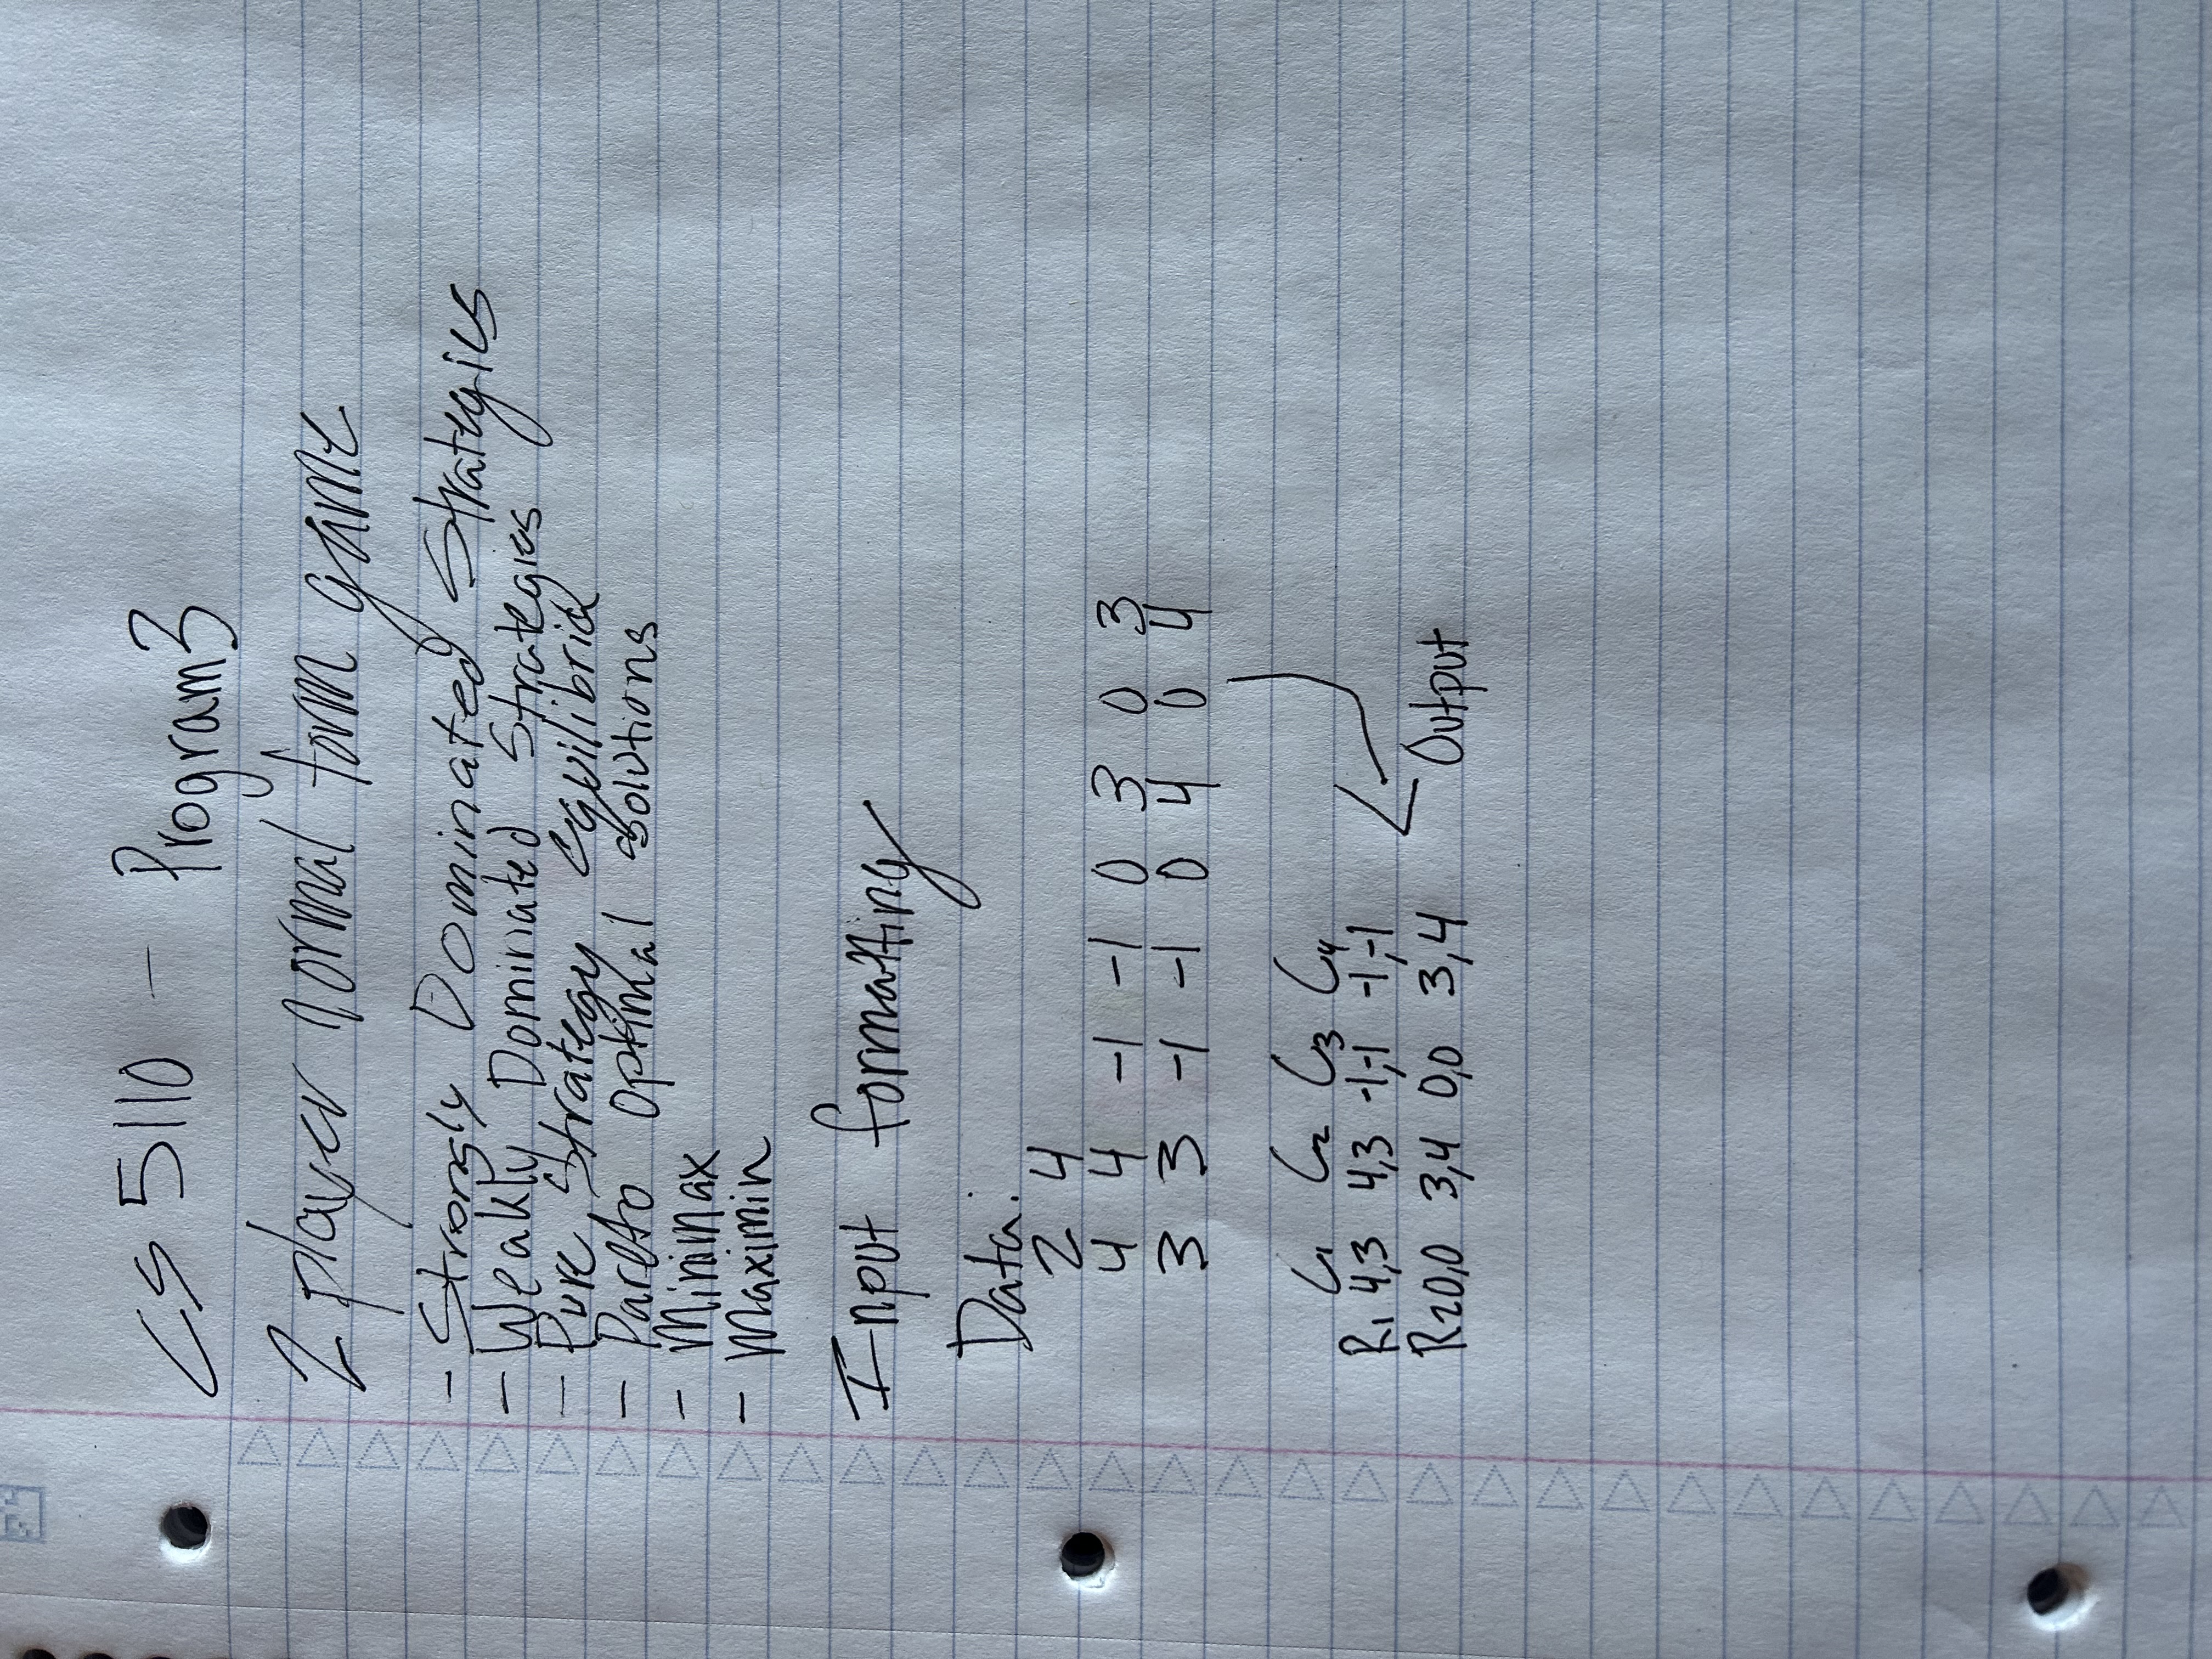 CS 5110 - Program3
2 player normal form game
- Strongly Dominated Strategies
- Weakly Dominated Strategies
- Pure Strategy equilibria
- Pareto Optimal solutions
- Minimax
- Maximin
Input formatting
Data:
2 4
4 4 -1 -1 0 3 0 3
3 3 -1 -1 0 4 0 4
C1 C2 C3 C4
R1 4,3 4,3 -1,-1 -1,-1
R2 0,0 3,4 0,0 3,4
Output